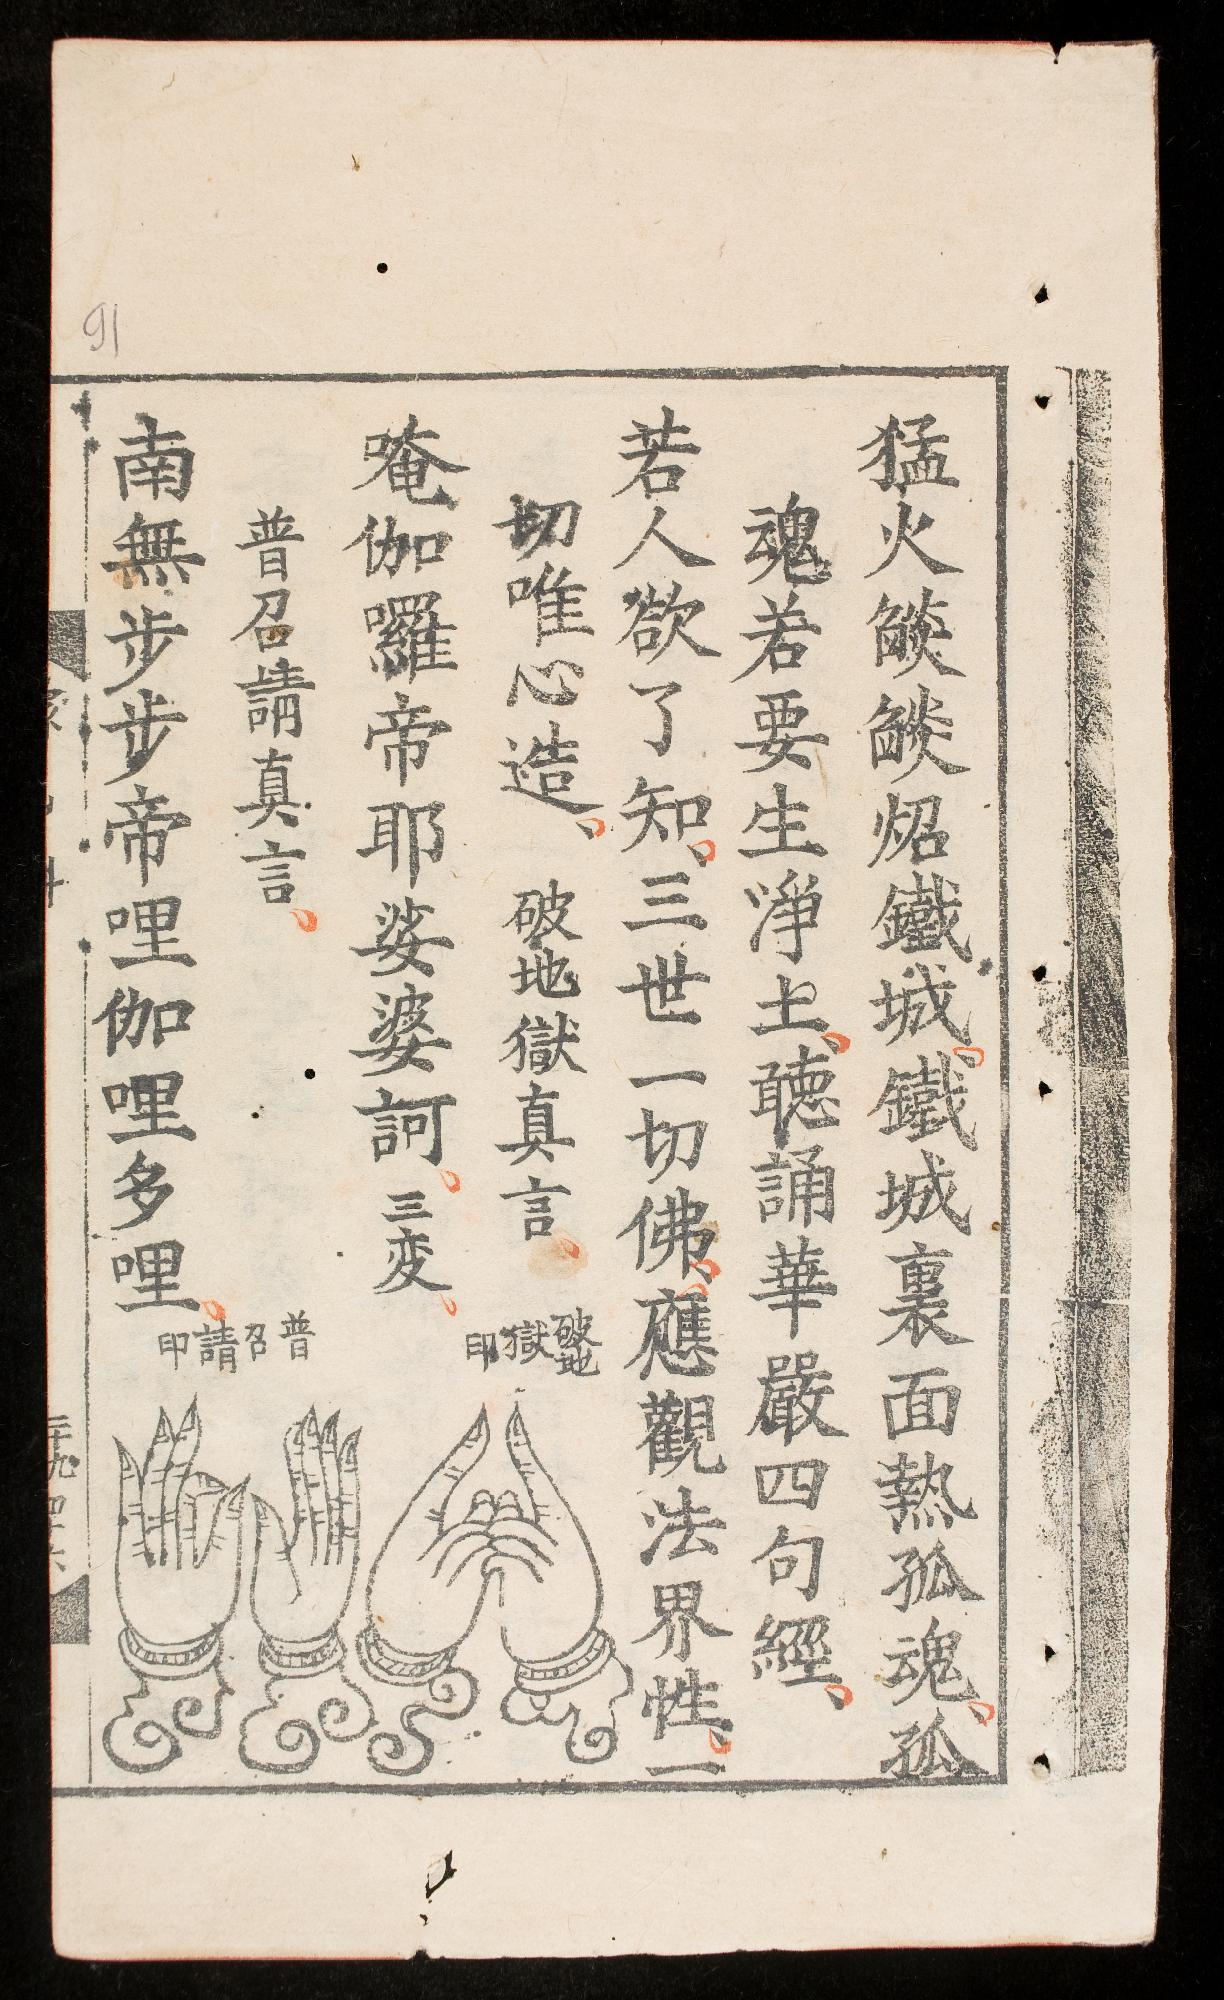 猛火燄燄炤鐵城鐵城裏面熱孤魂孤
魂若要生淨土聽誦華嚴四句經
若人欲了知三世一切佛應觀法界性一
切唯心造 破地獄真言
唵伽囉帝耶娑婆訶 三変
普召請真言
南無步步帝哩伽哩多哩
破地獄印
普召請印
91